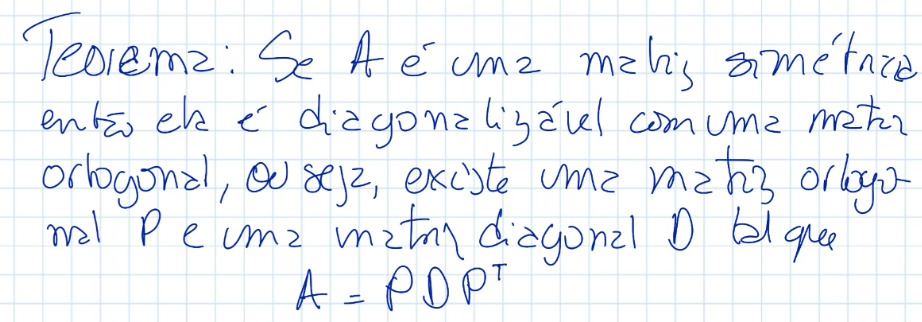 Teorema: Se A é uma matriz simétrica
então ela é diagonalizável com uma matriz
ortogonal, ou seja, existe uma matriz ortogo-
nal P e uma matriz diagonal D tal que
A = PDPᵀ